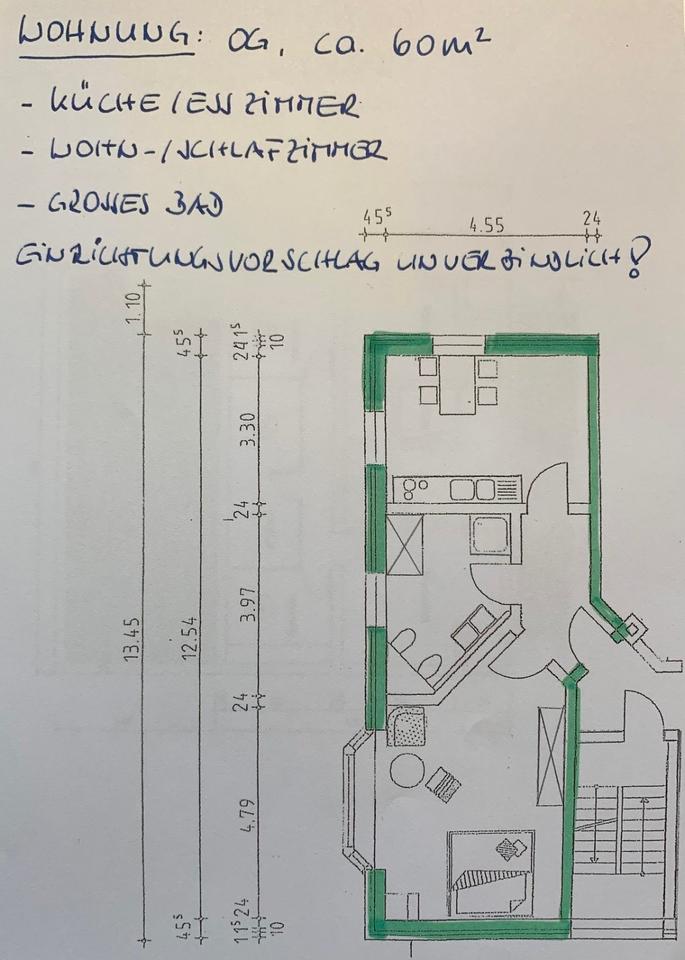 WOHNUNG: OG, ca. 60m²
- KÜCHE/ESSZIMMER
- WOHN-/SCHLAFZIMMER
- GROSSES BAD
45⁵ 4.55 24
EINRICHTUNGSVORSCHLAG UNVERBINDLICH!
1.10
45⁵
24 1⁵
10
3.30
24
3.97
13.45
12.54
24
4.79
45⁵
11⁵ 24
10